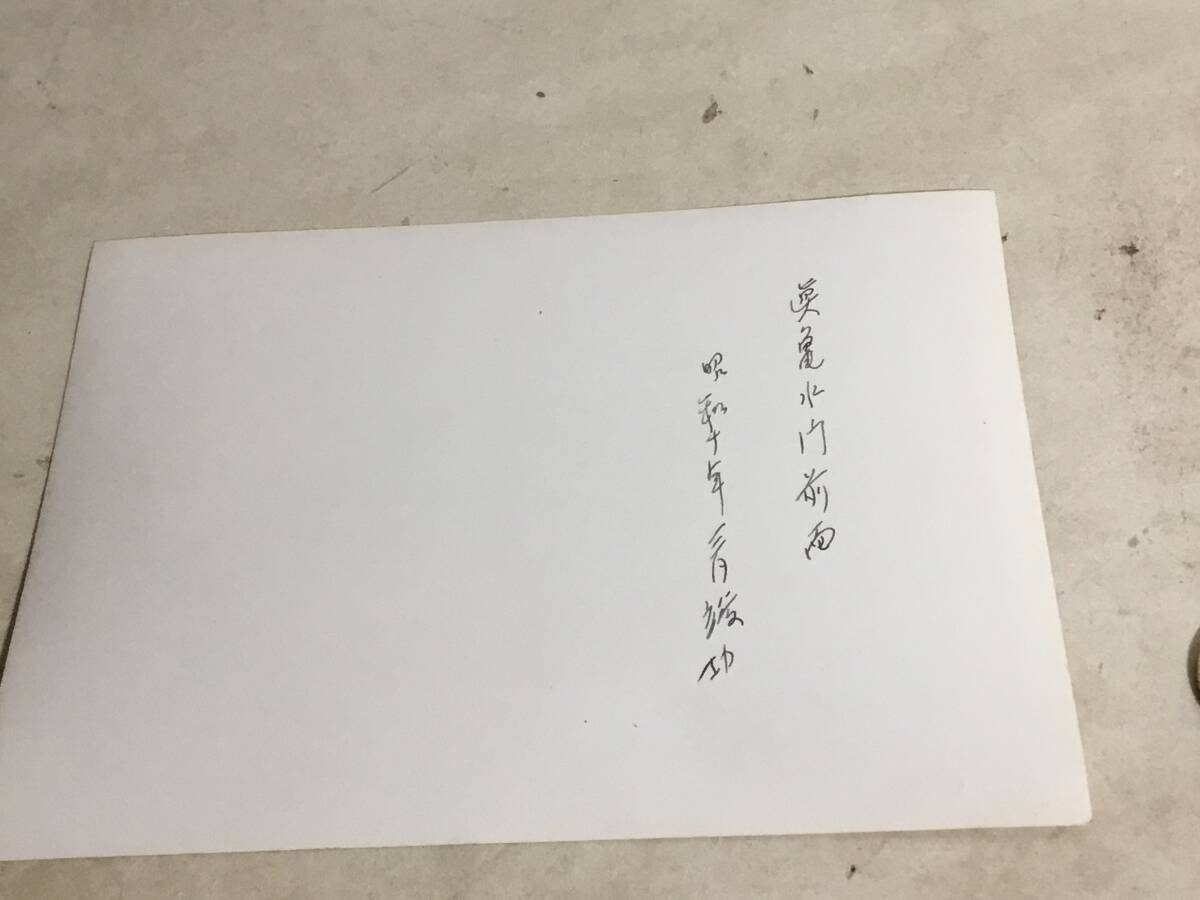 亀水門前面
昭和十年三月竣功